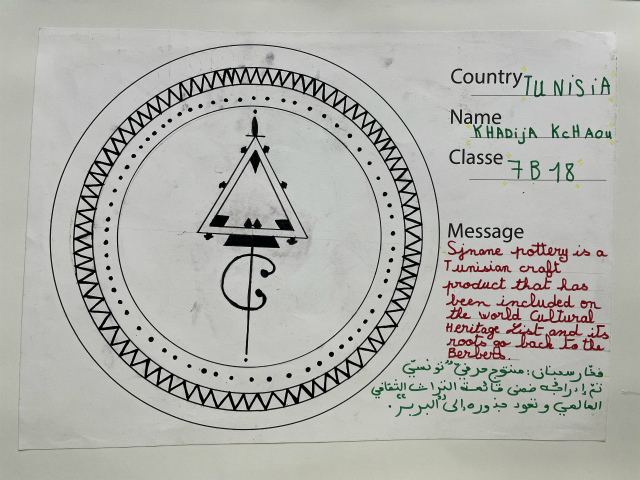 Country TUNISIA
Name KHADijA KcHAOU
Classe 7 B 18
Message
Sjnane pottery is a
Tunisian craft
product that has
been included on
the world Cultural
Heritage List and its
roots go back to the
Berbers.
فخّار سجنان: منتوج حرفيّ تونسيّ
تمّ إدراجه ضمن قائمة التراث الثقافي
العالمي وتعود جذوره إلى "البربر".